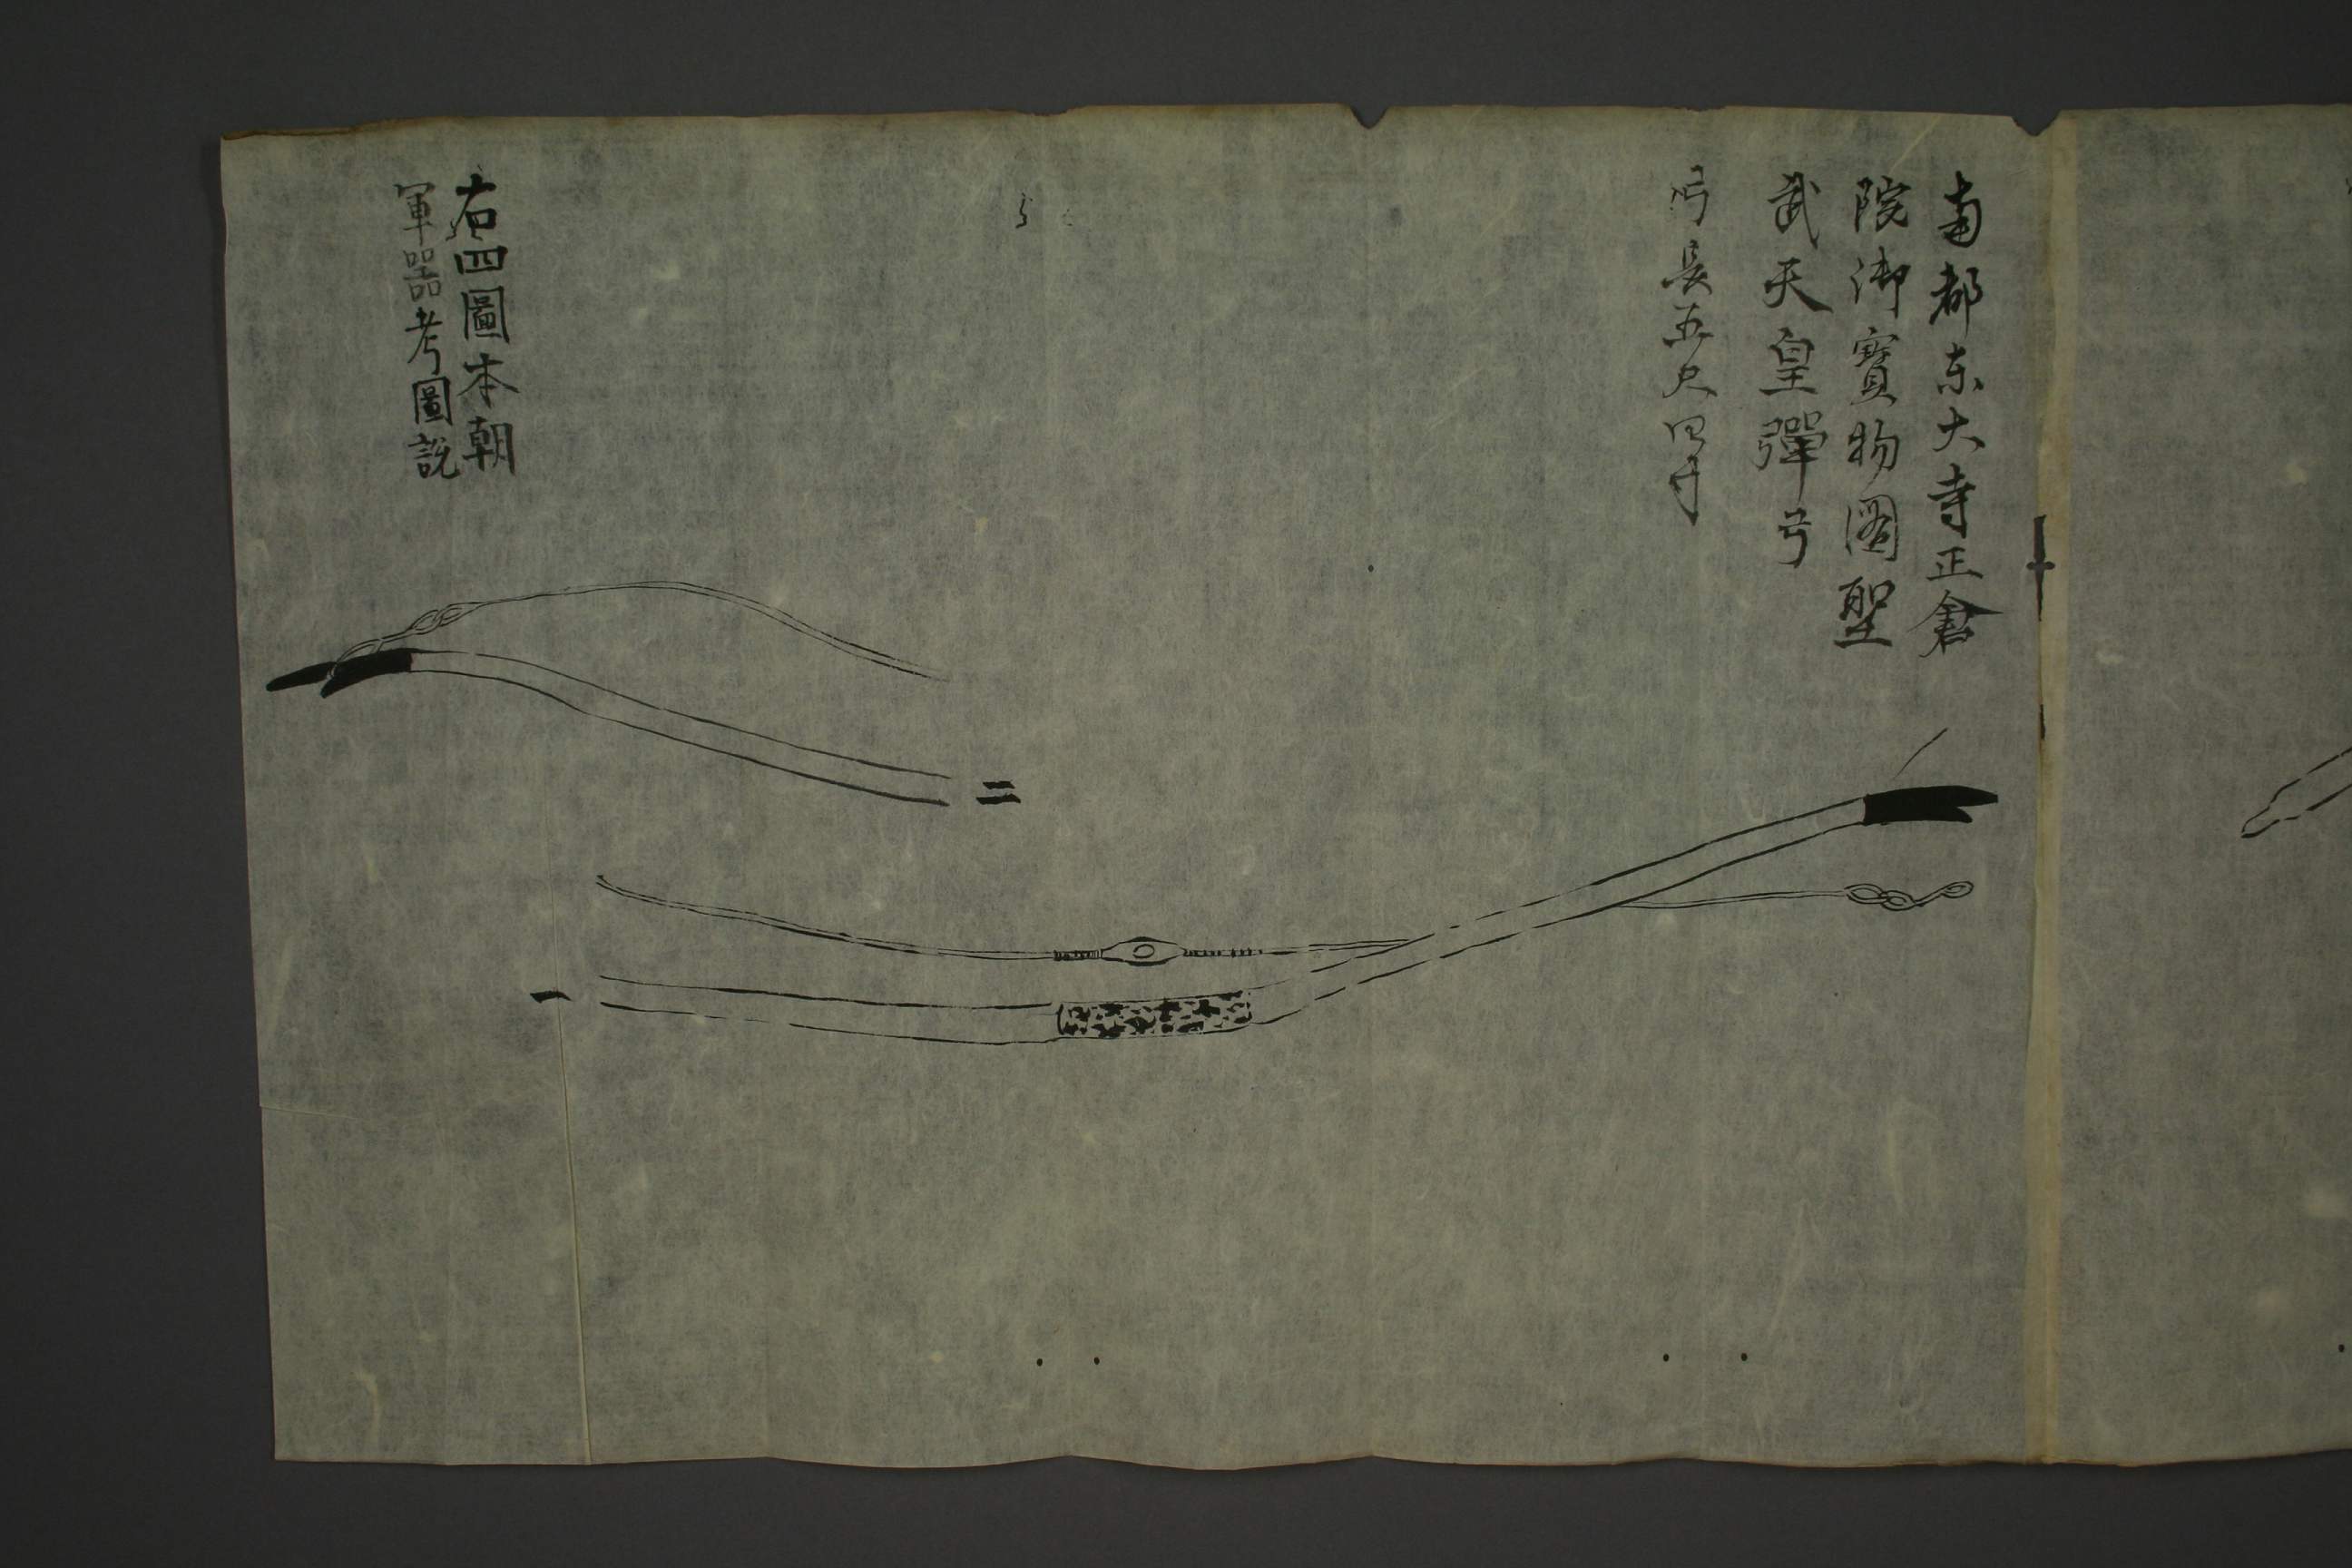 南都东大寺正倉
院御寳物圖聖
武天皇彈弓
弓長五尺四寸
二
一
右四圖本朝
軍器考圖説